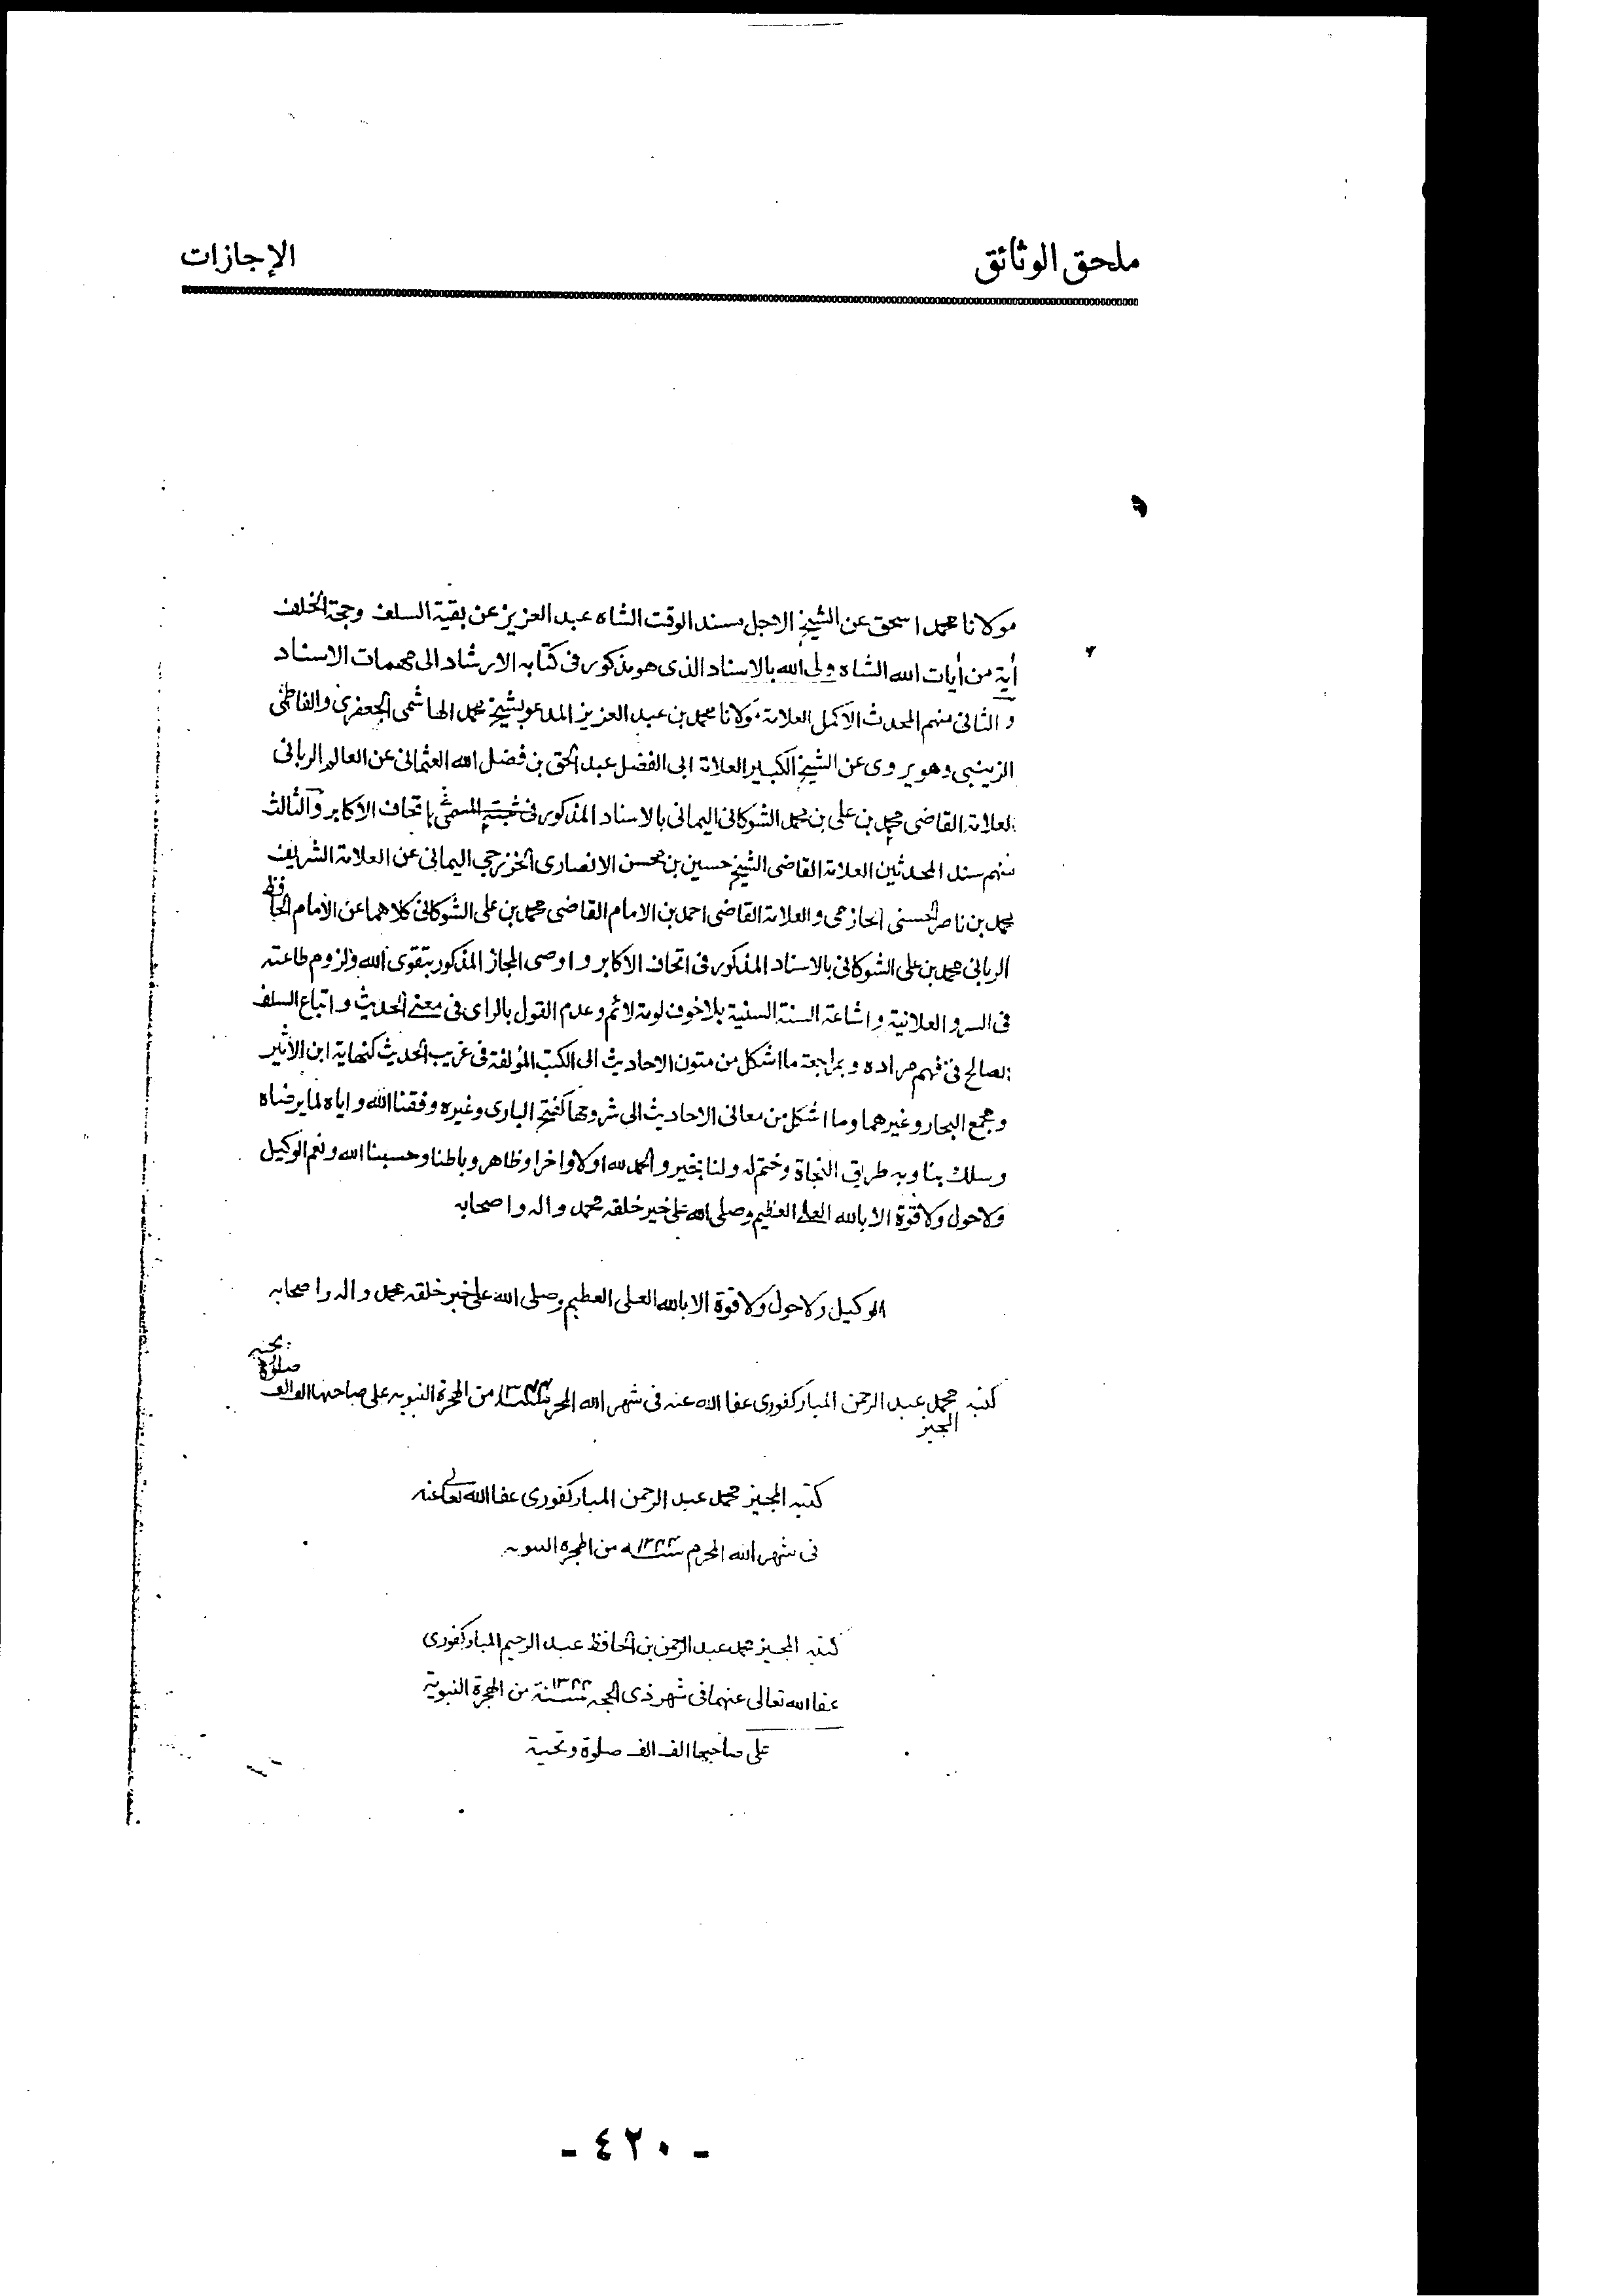 ملحق الوثائق
الإجازات
مولانا محمد اسحق عن الشيخ الاجل مسند الوقت الشاه عبد العزيز عن بقية السلف وحجة الخلف
أية من أيات الله الشاه ولى الله بالاسناد الذى هو مذكور فى كتابه الارشاد الى مهمات الاسناد
و الثانى منهم المحدث الاكمل العلامة مولانا محمد بن عبد العزيز المدعو بشيخ محمد الهاشمى الجعفرى والفاطمى
الزينبى وهو يروى عن الشيخ الكبير العلامة ابى الفضل عبد الحق بن فضل الله العثمانى عن العالم الربانى
العلامة القاضى محمد بن على بن محمد الشوكانى اليمانى بالاسناد المذكور فى ثبته المسمى باتحاف الاكابر والثالث
منهم سند المحدثين العلامة القاضى الشيخ حسين بن محسن الانصارى الخزرجى اليمانى عن العلامة الشريف
محمد بن ناصر الحسنى الحازمى والعلامة القاضى احمد بن الامام القاضى محمد بن على الشوكانى كلاهما عن الامام الحافظ
الربانى محمد بن على الشوكانى بالاسناد المذكور فى اتحاف الاكابر واوصى المجاز المذكور بتقوى الله ولزوم طاعته
فى السر و العلانية واشاعة السنة السنية بلا خوف لومة لائم وعدم القول بالراى فى معنى الحديث واتباع السلف
الصالح فى فهم مراده وبمراجعة ما اشكل من متون الاحاديث الى الكتب المؤلفة فى غريب الحديث كنهاية ابن الأثير
ومجمع البحار وغيرهما وما اشكل من معانى الاحاديث الى شروحها كفتح البارى وغيره وفقنا الله واياه لما يرضاه
وسلك بنا وبه طريق النجاة وختم له ولنا بخير والحمد لله اولا واخرا وظاهر وباطنا وحسبنا الله ونعم الوكيل
ولا حول ولا قوة الا بالله العلى العظيم وصلى الله على خير خلقه محمد واله واصحابه
الوكيل ولا حول ولا قوة الا بالله العلى العظيم وصلى الله على خير خلقه محمد واله واصحابه
كتبه المجيز محمد عبد الرحمن المباركفورى عفا الله عنه فى شهر الله المحرم من الهجرة النبوية على صاحبها الف الف صلوة
كتبه المجيز محمد عبد الرحمن المباركفورى عفا الله تعالى عنه
فى شهر الله المحرم من الهجرة النبويه
كتبه المجيز محمد عبد الرحمن بن الحافظ عبد الرحيم المباركفورى
عفا الله تعالى عنهما فى شهر ذى الحجه من الهجرة النبوية
على صاحبها الف الف صلوة وتحية
- ٤٢٠ -